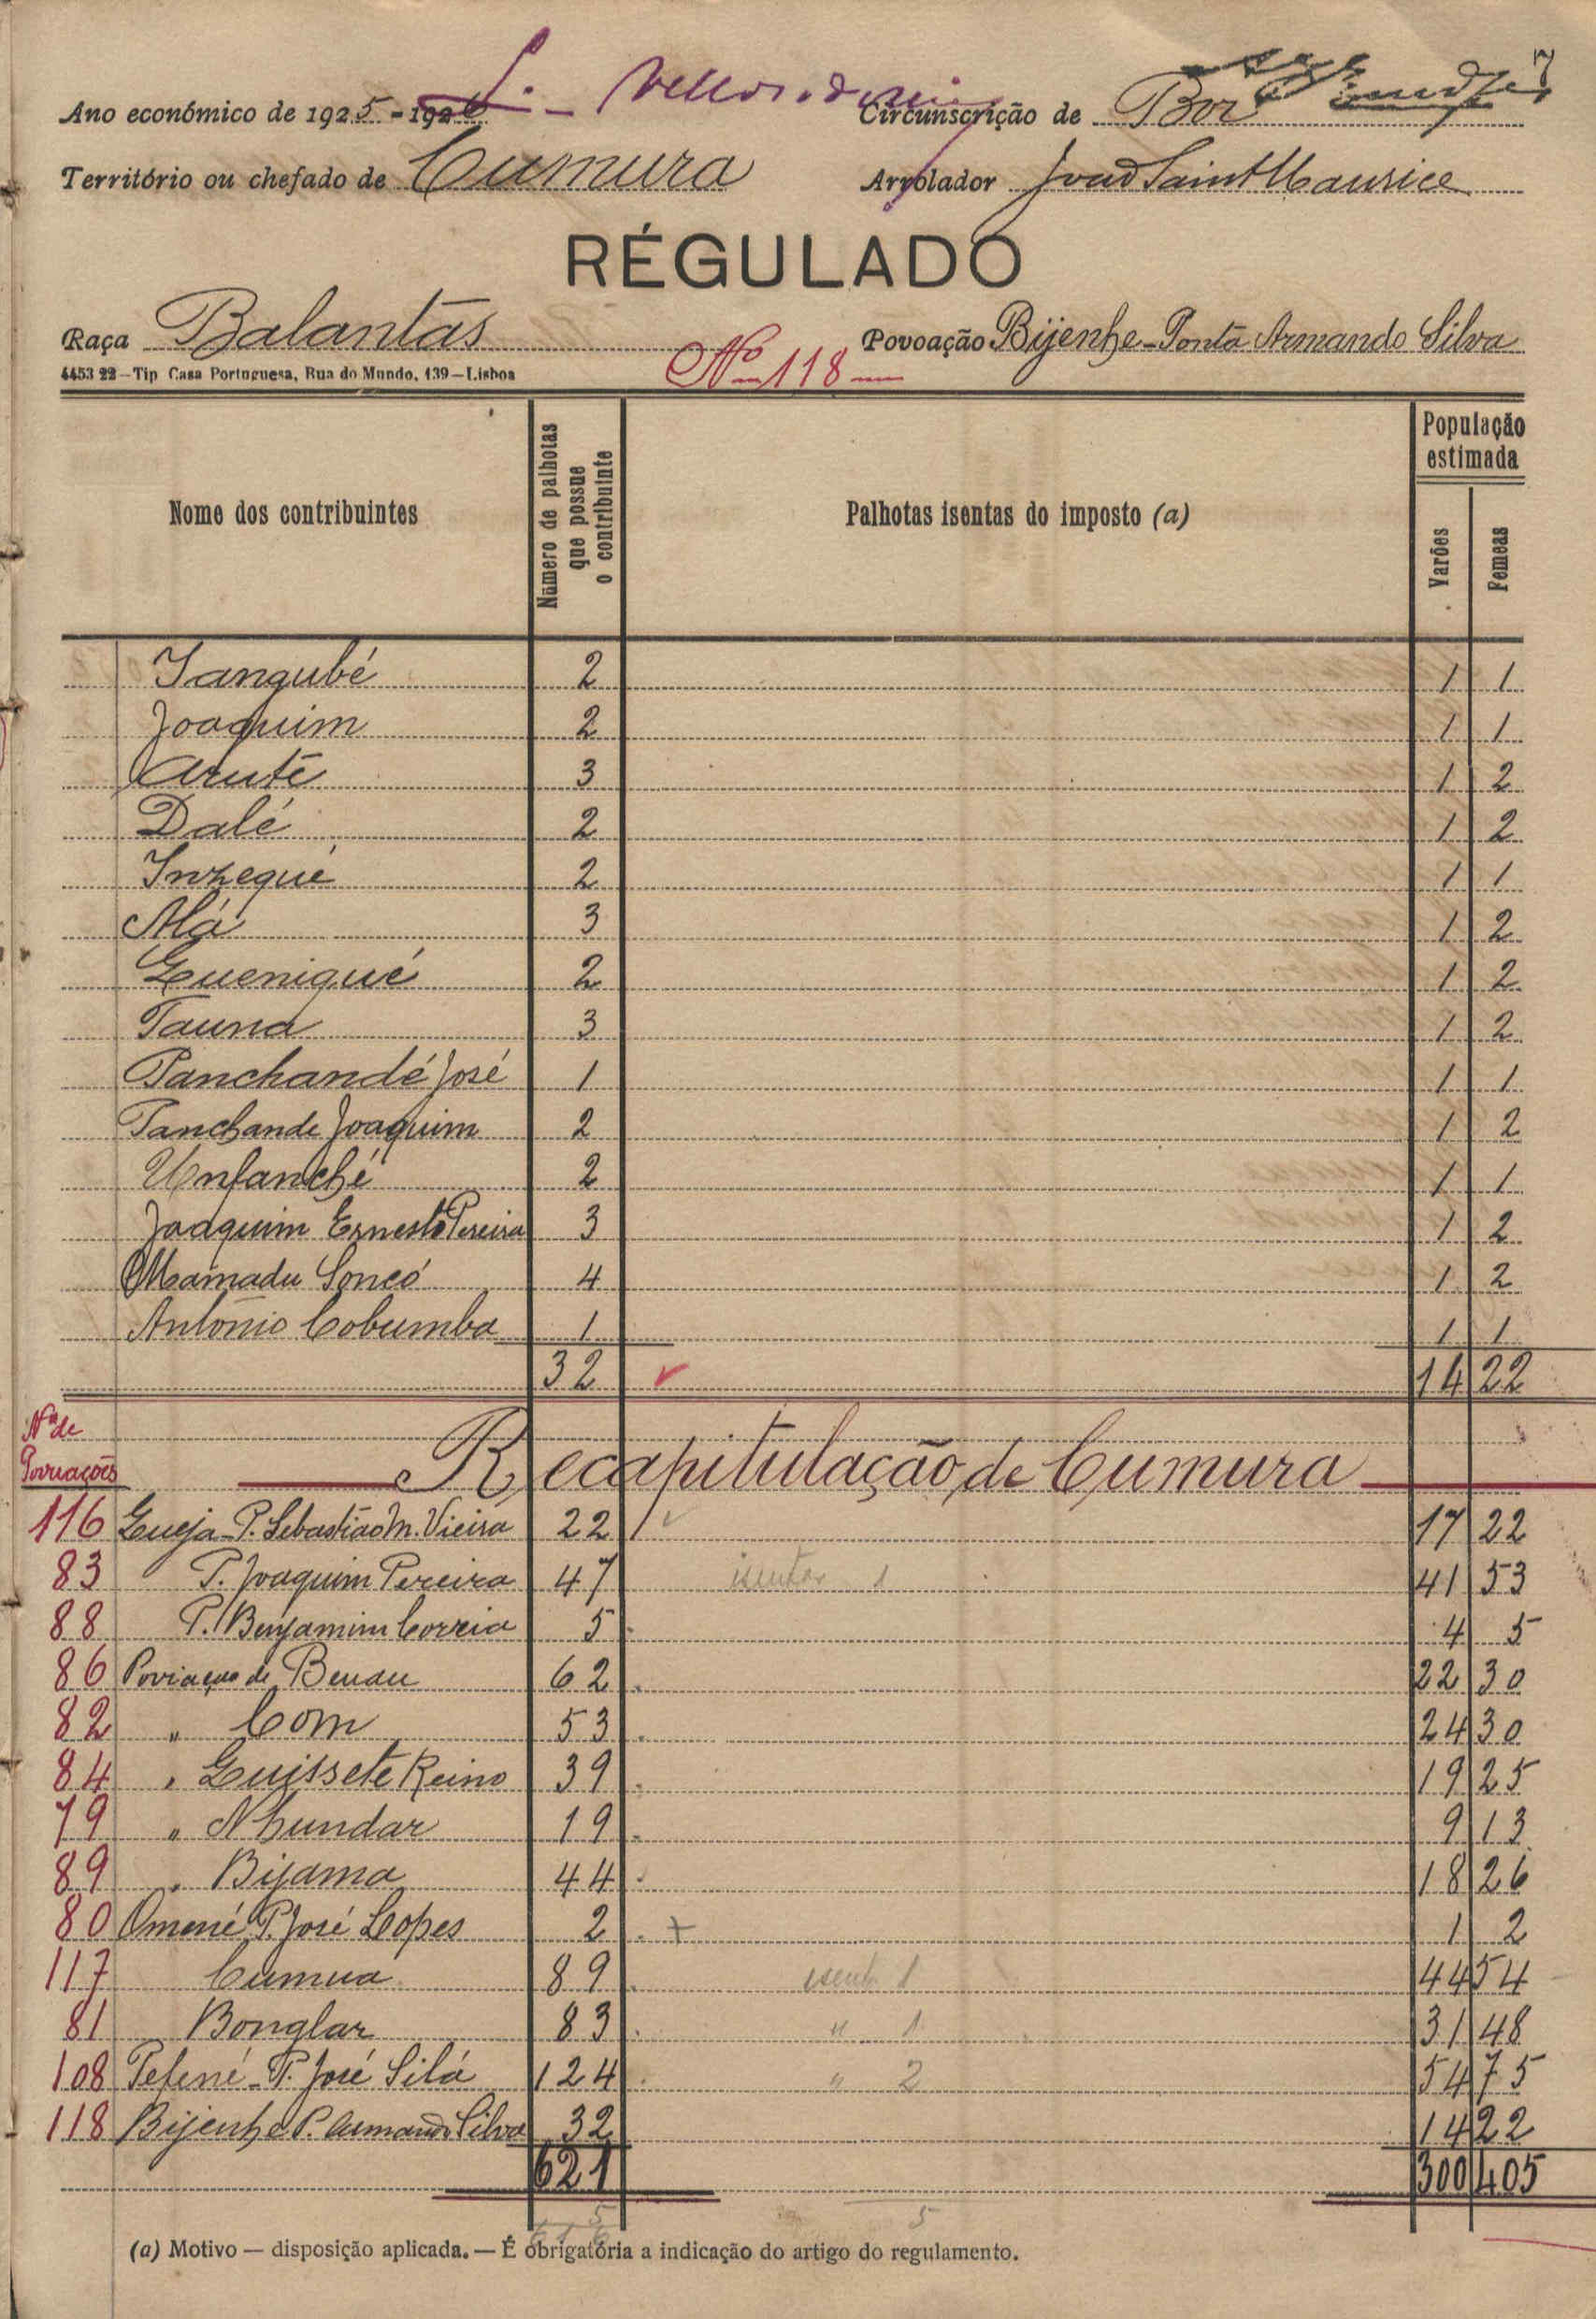 7
Ano económico de 1925-1926 Circunscrição de Bor
Território ou chefado de Cumura Arrolador João Saint Maurice
RÉGULADO
Raça Balantas Povoação Bijenhe - Ponta Armando Silva
4453 22—Tip Casa Portuguesa, Rua do Mundo, 139—Lisboa Nº 118
Nome dos contribuintes Número de palhotas que possue o contribuinte Palhotas isentas do imposto (a) População estimada Varões Femeas
Tangubé 2 1 1
Joaquim 2 1 1
Aruté 3 1 2
Dalé 2 1 2
Inzequé 2 1 1
Alá 3 1 2
Gueniqué 2 1 2
Tauna 3 1 2
Panchandé José 1 1 1
Panchande Joaquim 2 1 2
Unfanché 2 1 1
Joaquim Ernesto Pereira 3 1 2
Mamadu Soncó 4 1 2
António Cobumba 1 1 1
32 14 22
Nos de
Povuações Recapitulação de Cumura
116 Gueja - P. Sebastião M. Vieira 22 17 22
83 P. Joaquim Pereira 47 isentas 1 41 53
88 P. Benjamim Correia 5 4 5
86 Poviaçao de Benau 62 22 30
82 " Com 53 24 30
84 " Guissete Reino 39 19 25
79 " Nhundar 19 9 13
89 " Bijama 44 18 26
80 Omené P. José Lopes 2 + 1 2
117 Cumua 89 isent. 1 44 54
81 Bonglar 83 " 1 31 48
108 Pefené - P. José Silá 124 " 2 54 75
118 Bijenhe P. Armando Silva 32 14 22
621 300 405
5 5
616
(a) Motivo — disposição aplicada. — É obrigatória a indicação do artigo do regulamento.